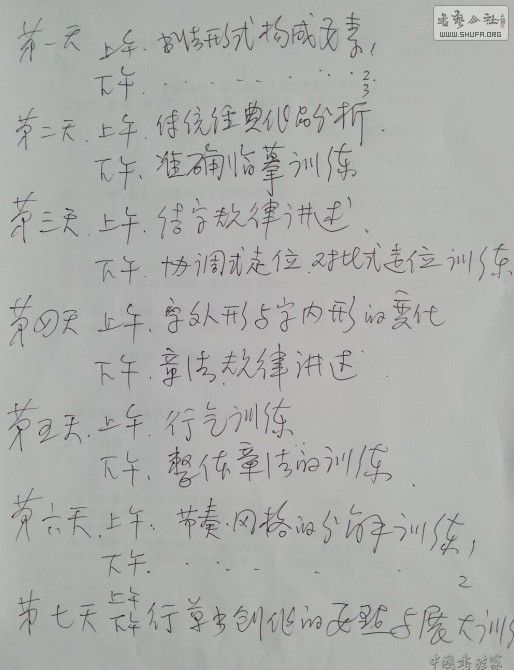 书艺公社
WWW.SHUFA.ORG
第一天 上午. 书法形式构成要素 1
下午. · · · · · · · 2.
3.
第二天. 上午. 传统经典作品分析.
下午. 准确临摹训练
第三天. 上午. 结字规律讲述.
下午. 协调式走位.对比式走位训练
第四天 上午. 字外形与字内形的变化
下午. 章法规律讲述.
第五天. 上午. 行气训练
下午. 整体章法的训练.
第六天. 上午. 节奏.风格的分解训练, 1
下午. · · · · 2
第七天 上午
下午 行草书创作的要点与展大训
中国书法家